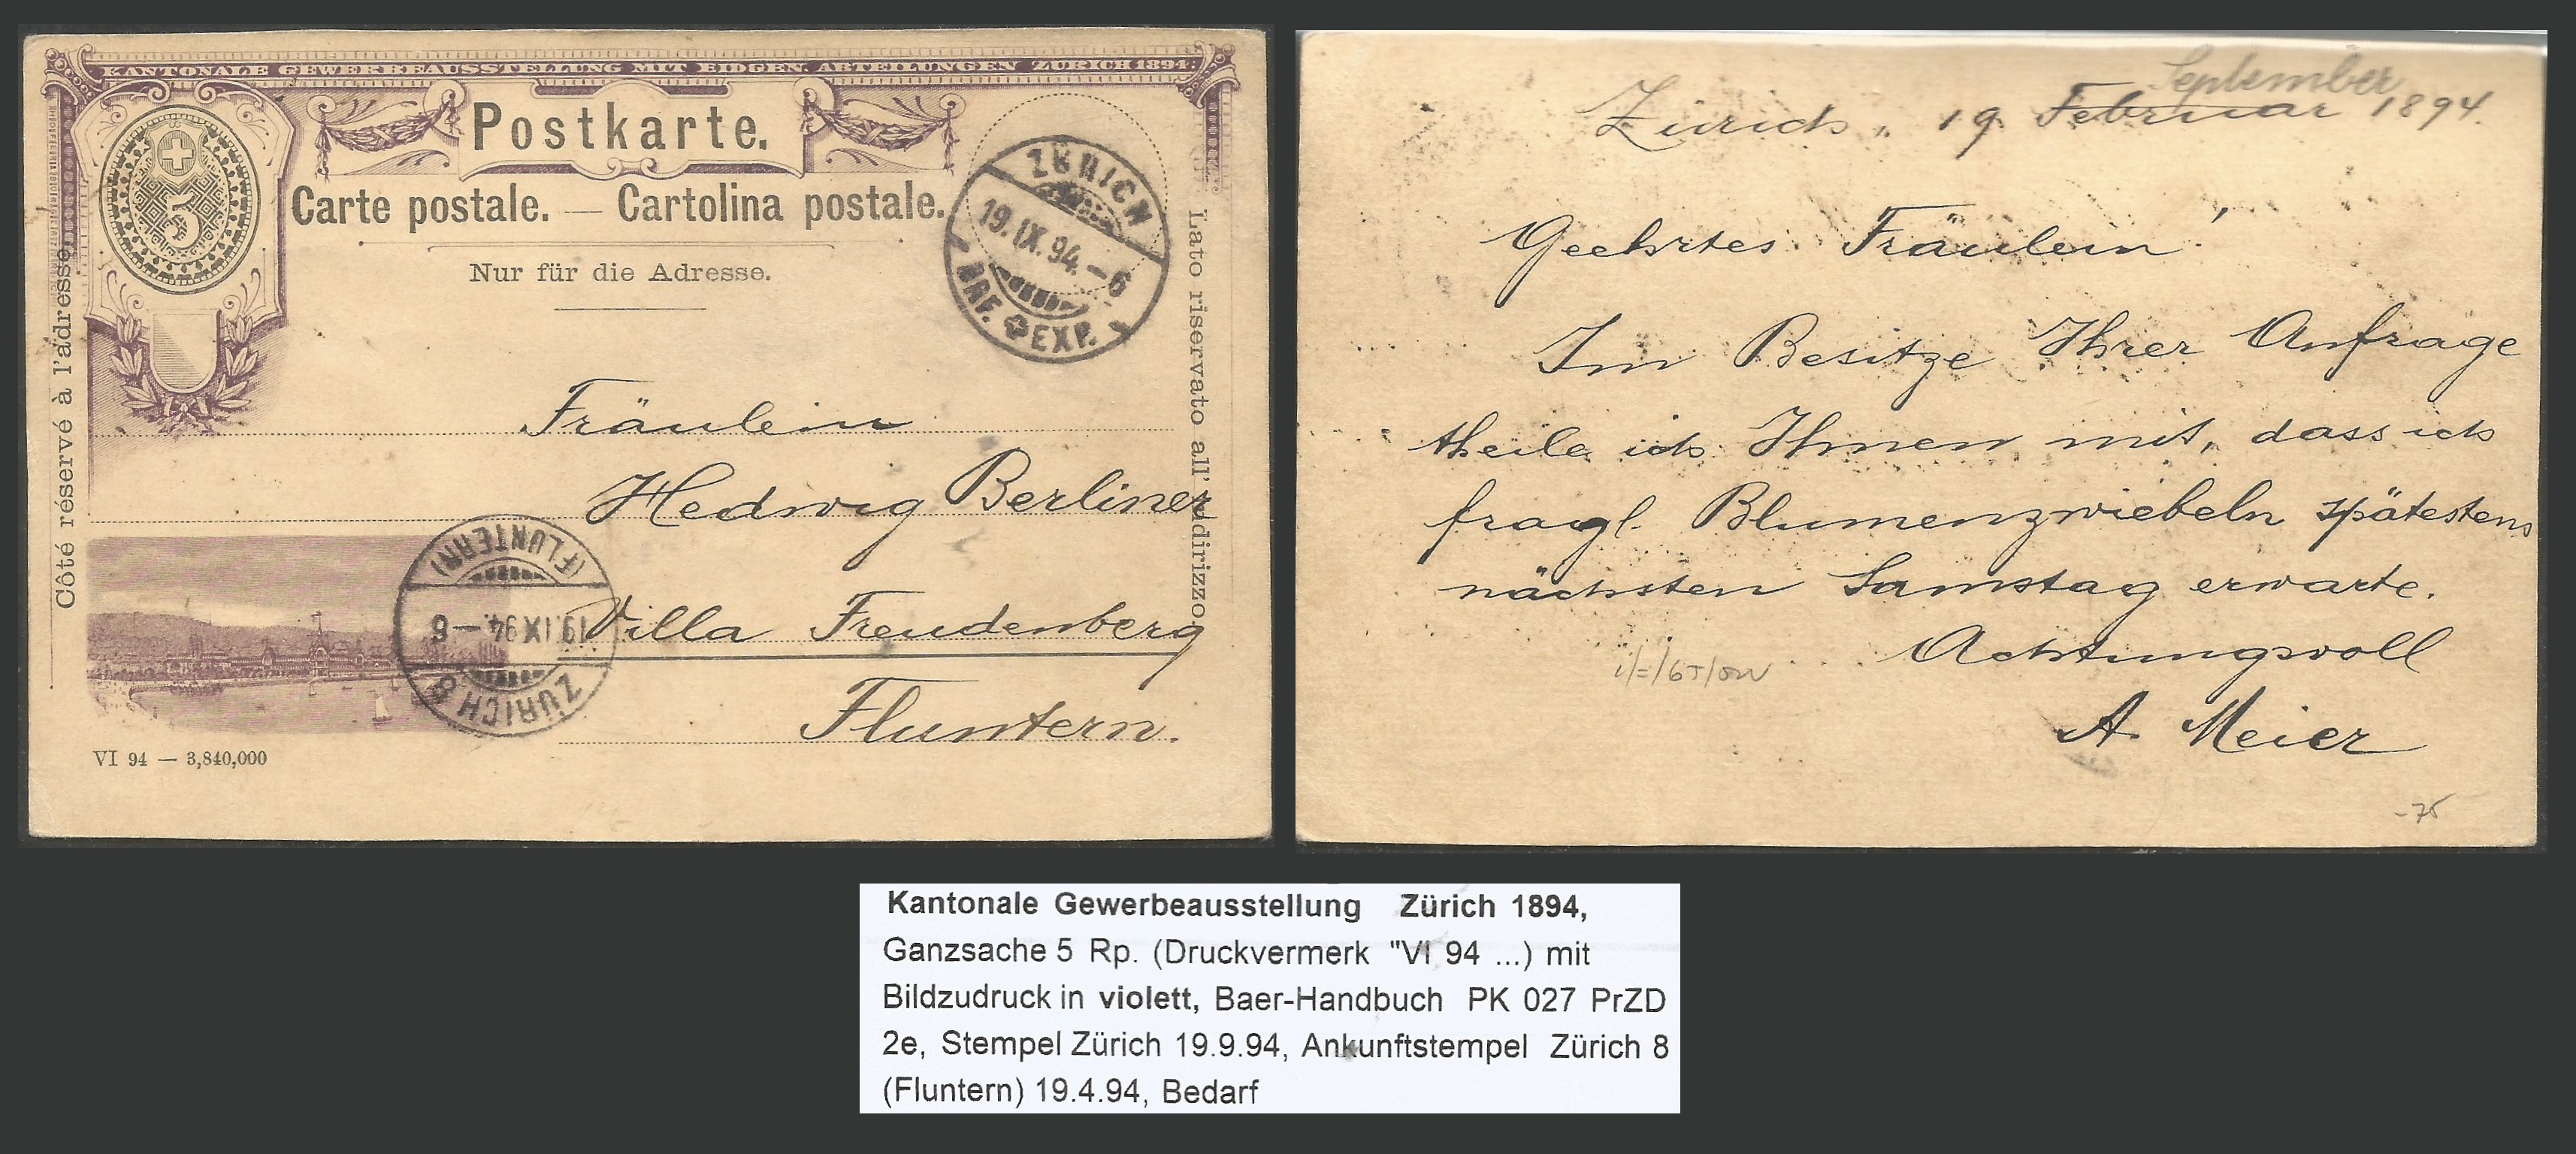 KANTONALE GEWERBEAUSSTELLUNG MIT EIDGEN. ABTEILUNGEN ZÜRICH 1894.
Postkarte.
Carte postale. — Cartolina postale.
Nur für die Adresse.
Côté réservé à l'adresse.
Lato riservato all' indirizzo.
5
ZÜRICH
19.IX.94.-6
BRF. EXP.
Fräulein
Hedwig Berliner
Villa Freudenberg
Fluntern.
(FLUNTERN)
19.IX.94.-6
ZÜRICH 8
VI 94 — 3,840,000
September
Zürich, 19 Februar 1894.
Geehrtes Fräulein!
Im Besitze Ihrer Anfrage
theile ich Ihnen mit, dass ich
fragl. Blumenzwiebeln spätestens
nächsten Samstag erwarte.
Achtungsvoll
A. Meier
-75
Kantonale Gewerbeausstellung Zürich 1894,
Ganzsache 5 Rp. (Druckvermerk "VI 94 ...) mit
Bildzudruck in violett, Baer-Handbuch PK 027 PrZD
2e, Stempel Zürich 19.9.94, Ankunftstempel Zürich 8
(Fluntern) 19.4.94, Bedarf